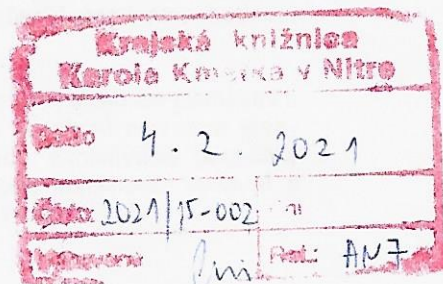 Krajská knižnica
Karola Kmeťka v Nitre
Došlo 4. 2. 2021
Číslo: 2021/15-002
AN7